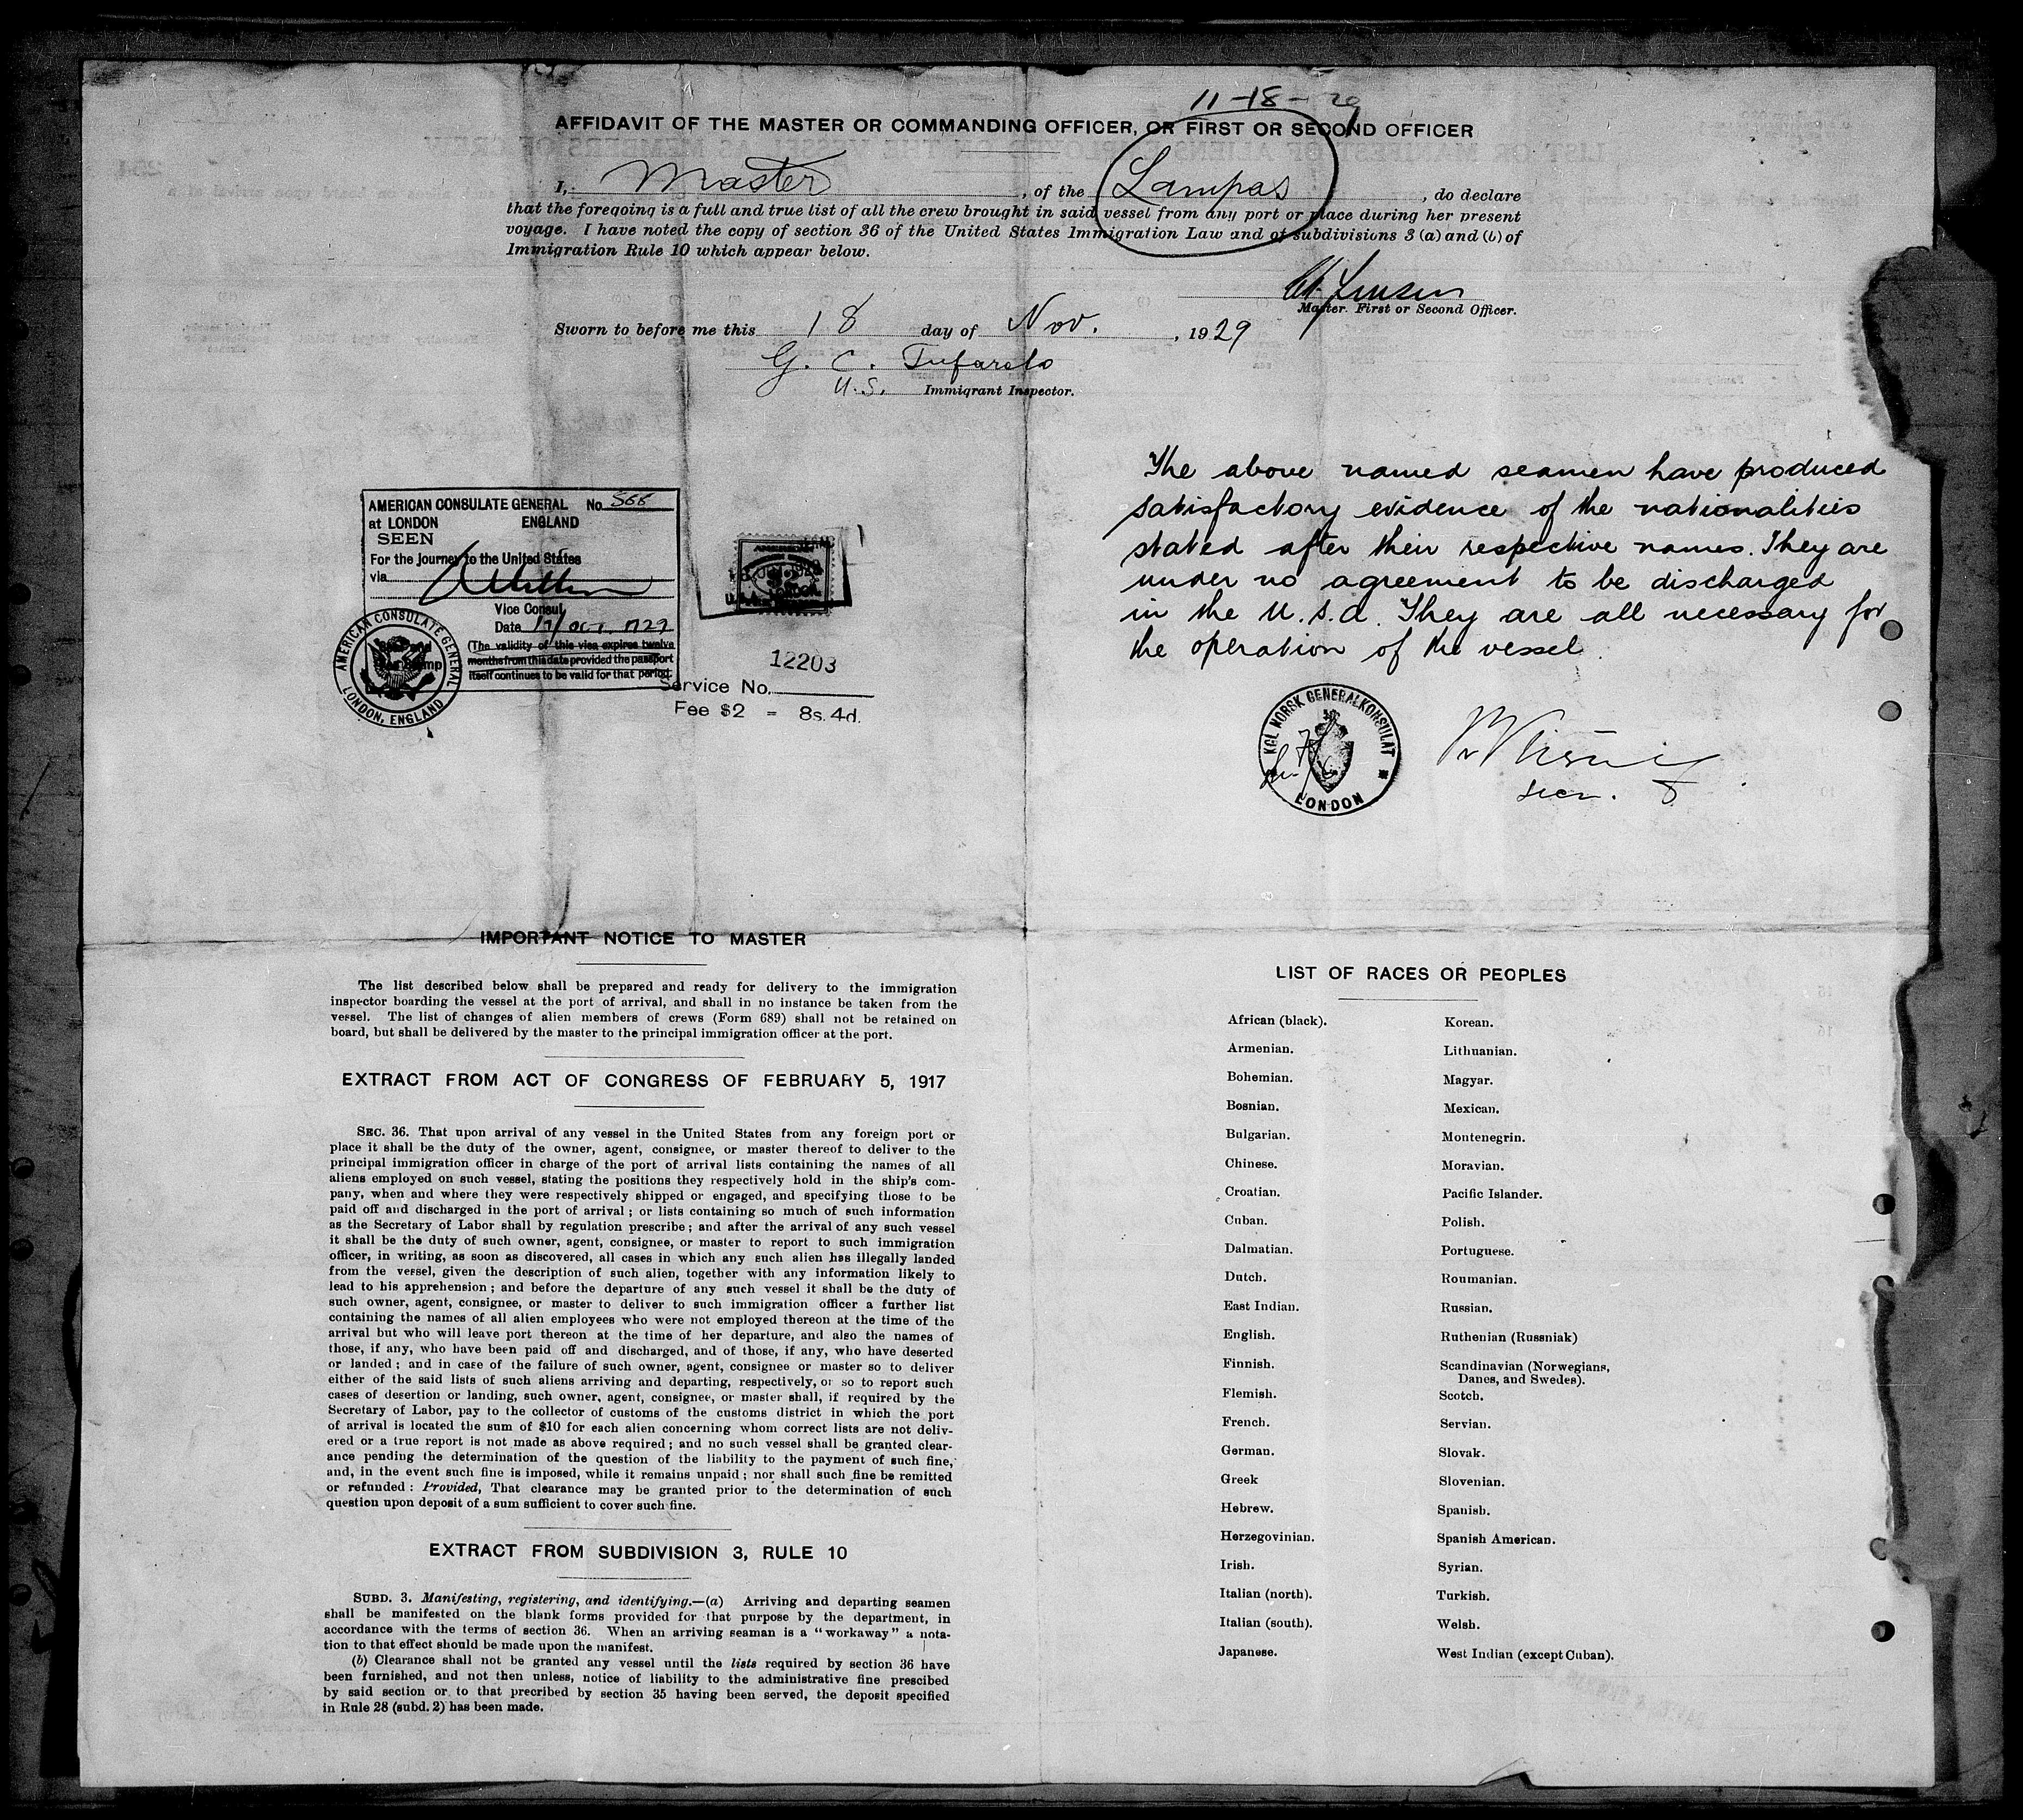 11-18-29
AFFIDAVIT OF THE MASTER OR COMMANDING OFFICER, OR FIRST OR SECOND OFFICER
I, Master, of the Lampas, do declare
that the foregoing is a full and true list of all the crew brought in said vessel from any port or place during her present
voyage. I have noted the copy of section 36 of the United States Immigration Law and of subdivisions 3 (a) and (b) of
Immigration Rule 10 which appear below.
Master. First or Second Officer.
Sworn to before me this 18 day of Nov., 1929
G. C. Tufarolo
U.S. Immigrant Inspector.
The above named seamen have produced
satisfactory evidence of the nationalities
stated after their respective names. They are
under no agreement to be discharged
in the U.S.A. They are all necessary for
the operation of the vessel.
AMERICAN CONSULATE GENERAL No
at LONDON ENGLAND
SEEN
For the journey to the United States
via
Vice Consul
Date 17 OCT. 1929
(The validity of this visa expires twelve
months from this date provided the passport
itself continues to be valid for that period.
AMERICAN CONSULATE GENERAL
LONDON, ENGLAND
AMERICAN
LONDON.
12203
Service No.
Fee $2 = 8s. 4d.
KGL NORSK GENERALKONSULAT
LONDON
IMPORTANT NOTICE TO MASTER
The list described below shall be prepared and ready for delivery to the immigration
inspector boarding the vessel at the port of arrival, and shall in no instance be taken from the
vessel. The list of changes of alien members of crews (Form 689) shall not be retained on
board, but shall be delivered by the master to the principal immigration officer at the port.
EXTRACT FROM ACT OF CONGRESS OF FEBRUARY 5, 1917
SEC. 36. That upon arrival of any vessel in the United States from any foreign port or
place it shall be the duty of the owner, agent, consignee, or master thereof to deliver to the
principal immigration officer in charge of the port of arrival lists containing the names of all
aliens employed on such vessel, stating the positions they respectively hold in the ship's com-
pany, when and where they were respectively shipped or engaged, and specifying those to be
paid off and discharged in the port of arrival; or lists containing so much of such information
as the Secretary of Labor shall by regulation prescribe; and after the arrival of any such vessel
it shall be the duty of such owner, agent, consignee, or master to report to such immigration
officer, in writing, as soon as discovered, all cases in which any such alien has illegally landed
from the vessel, given the description of such alien, together with any information likely to
lead to his apprehension; and before the departure of any such vessel it shall be the duty of
such owner, agent, consignee, or master to deliver to such immigration officer a further list
containing the names of all alien employees who were not employed thereon at the time of the
arrival but who will leave port thereon at the time of her departure, and also the names of
those, if any, who have been paid off and discharged, and of those, if any, who have deserted
or landed; and in case of the failure of such owner, agent, consignee or master so to deliver
either of the said lists of such aliens arriving and departing, respectively, or so to report such
cases of desertion or landing, such owner, agent, consignee, or master shall, if required by the
Secretary of Labor, pay to the collector of customs of the customs district in which the port
of arrival is located the sum of $10 for each alien concerning whom correct lists are not deliv-
ered or a true report is not made as above required; and no such vessel shall be granted clear-
ance pending the determination of the question of the liability to the payment of such fine,
and, in the event such fine is imposed, while it remains unpaid; nor shall such fine be remitted
or refunded: Provided, That clearance may be granted prior to the determination of such
question upon deposit of a sum sufficient to cover such fine.
EXTRACT FROM SUBDIVISION 3, RULE 10
SUBD. 3. Manifesting, registering, and identifying.—(a) Arriving and departing seamen
shall be manifested on the blank forms provided for that purpose by the department, in
accordance with the terms of section 36. When an arriving seaman is a "workaway" a nota-
tion to that effect should be made upon the manifest.
(b) Clearance shall not be granted any vessel until the lists required by section 36 have
been furnished, and not then unless, notice of liability to the administrative fine prescibed
by said section or to that precribed by section 35 having been served, the deposit specified
in Rule 28 (subd. 2) has been made.
LIST OF RACES OR PEOPLES
African (black).
Armenian.
Bohemian.
Bosnian.
Bulgarian.
Chinese.
Croatian.
Cuban.
Dalmatian.
Dutch.
East Indian.
English.
Finnish.
Flemish.
French.
German.
Greek
Hebrew.
Herzegovinian.
Irish.
Italian (north).
Italian (south).
Japanese.
Korean.
Lithuanian.
Magyar.
Mexican.
Montenegrin.
Moravian.
Pacific Islander.
Polish.
Portuguese.
Roumanian.
Russian.
Ruthenian (Russniak)
Scandinavian (Norwegians,
Danes, and Swedes).
Scotch.
Servian.
Slovak.
Slovenian.
Spanish.
Spanish American.
Syrian.
Turkish.
Welsh.
West Indian (except Cuban).